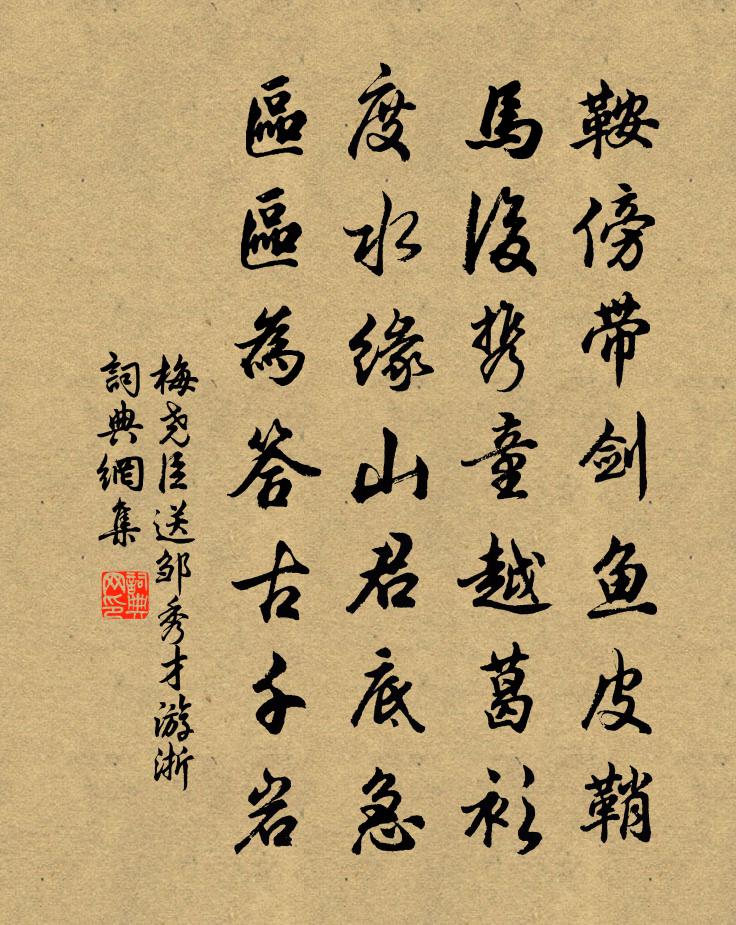 鞍傍带剑鱼皮鞘
馬後携童越葛衫
度水缘山君底急
區區為答古千岩
梅尧臣送邹秀才游浙
詞典網集
詞典网印